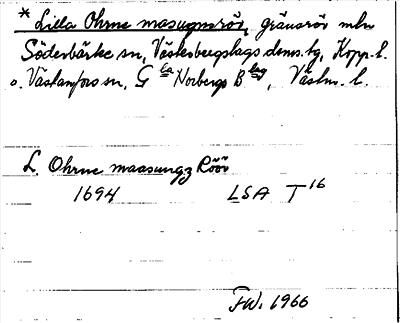 * Lilla Ohrne masugnsrör, gränsrör mln
Söderbärke sn, Västerbergslags doms. tg, Kopp. l.
o. Västanfors sn, G la Norbergs B lag, Västm. l.
L. Ohrne maasungz Röör
1694 LSA T 16
FW. 1966